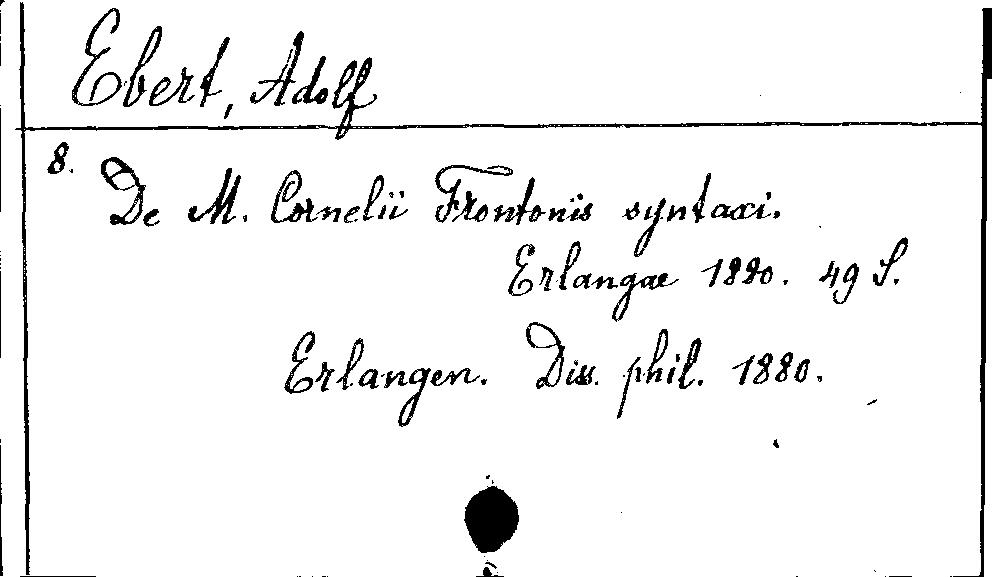 Ebert, Adolf
8.
De M. Cornelii Frontonis syntaxi.
Erlangae 1880. 49 S.
Erlangen. Diss. phil. 1880.